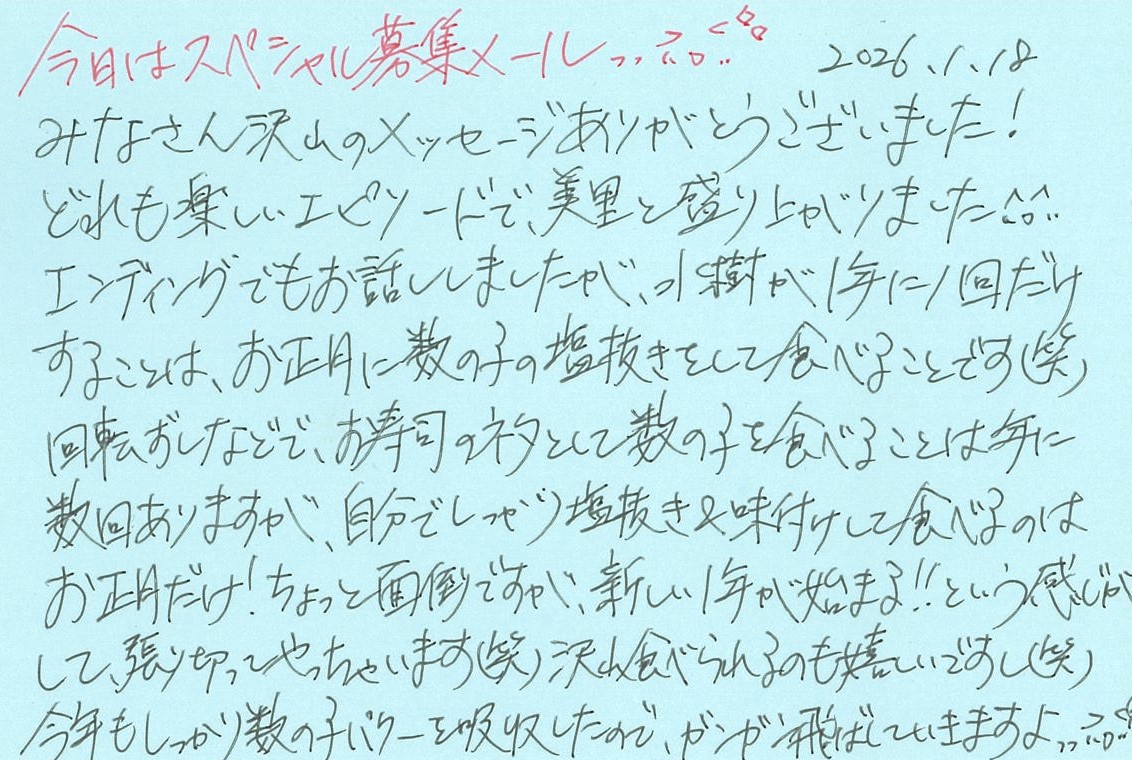 今日はスペシャル募集メール
2026.1.18
みなさん沢山のメッセージありがとうございました!
どれも楽しいエピソードで、美里と盛り上がりました
エンディングでもお話ししましたが、水樹が1年に1回だけ
することは、お正月に数の子の塩抜きをして食べることです(笑)
回転ずしなどで、お寿司のネタとして数の子を食べることは年に
数回ありますが、自分でしっかり塩抜き&味付けして食べるのは
お正月だけ!ちょっと面倒ですが、新しい1年が始まる!!という感じが
して、張り切ってやっちゃいます(笑)沢山食べられるのも嬉しいですし(笑)
今年もしっかり数の子パワーを吸収したので、ガンガン飛ばしていきますよ